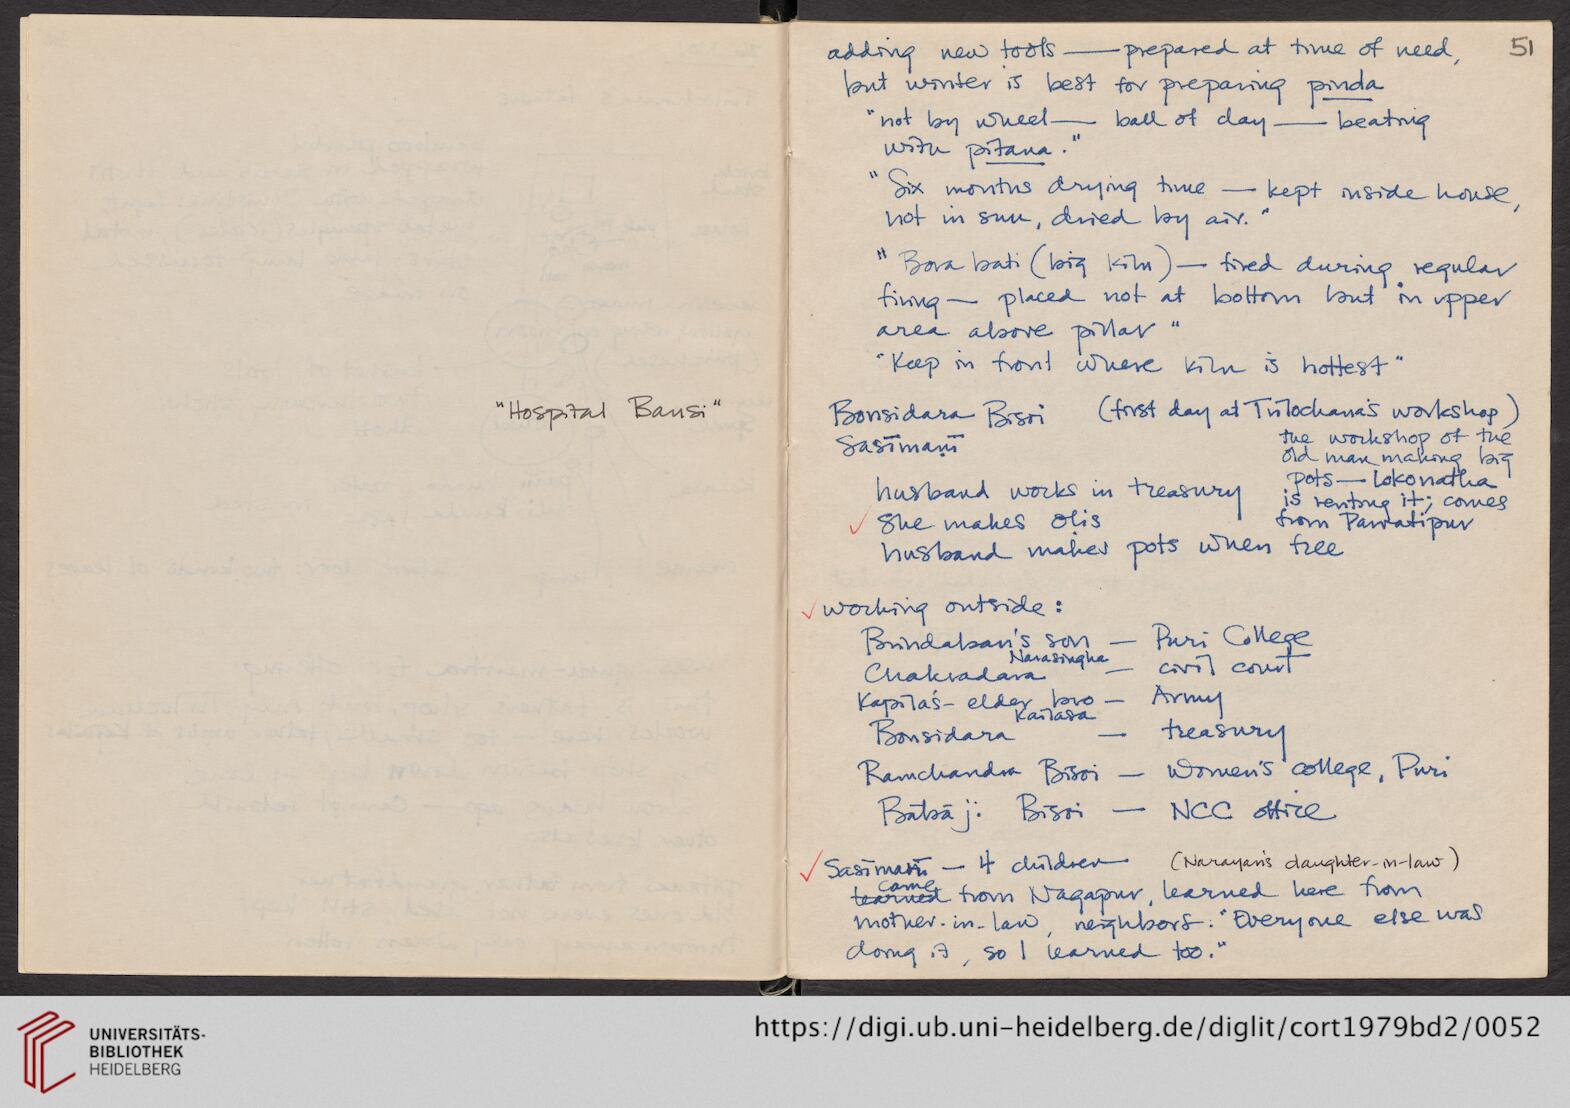 "Hospital Bansi"
51
adding new tools — prepared at time of need,
but winter is best for preparing pinda
"not by wheel — ball of clay — beating
with pitana."
"Six months drying time — kept inside house,
not in sun, dried by air."
"Bora bati (big kiln) — fired during regular
firing — placed not at bottom but in upper
area above pillar"
"Keep in front where kiln is hottest"
Bonsidara Bisoi (first day at Trilochana's workshop)
Sasimani
the workshop of the
old man making big
pots — Lokonatha
is renting it; comes
from Parvatipur
husband works in treasury
✓ She makes olis
husband makes pots when free
✓ working outside:
Brindaban's son — Puri College
Narasingha
Chakradara — civil court
Kapila's - elder bro — Army
Kailasa
Bonsidara — treasury
Ramchandra Bisoi — Women's college, Puri
Bābāji Bisoi — NCC office
✓ Sasimani — 4 children (Narayan's daughter-in-law)
came
learned from Nagapur, learned here from
mother-in-law, neighbors: "Everyone else was
doing it, so I learned too."
UNIVERSITÄTS-
BIBLIOTHEK
HEIDELBERG
https://digi.ub.uni-heidelberg.de/diglit/cort1979bd2/0052